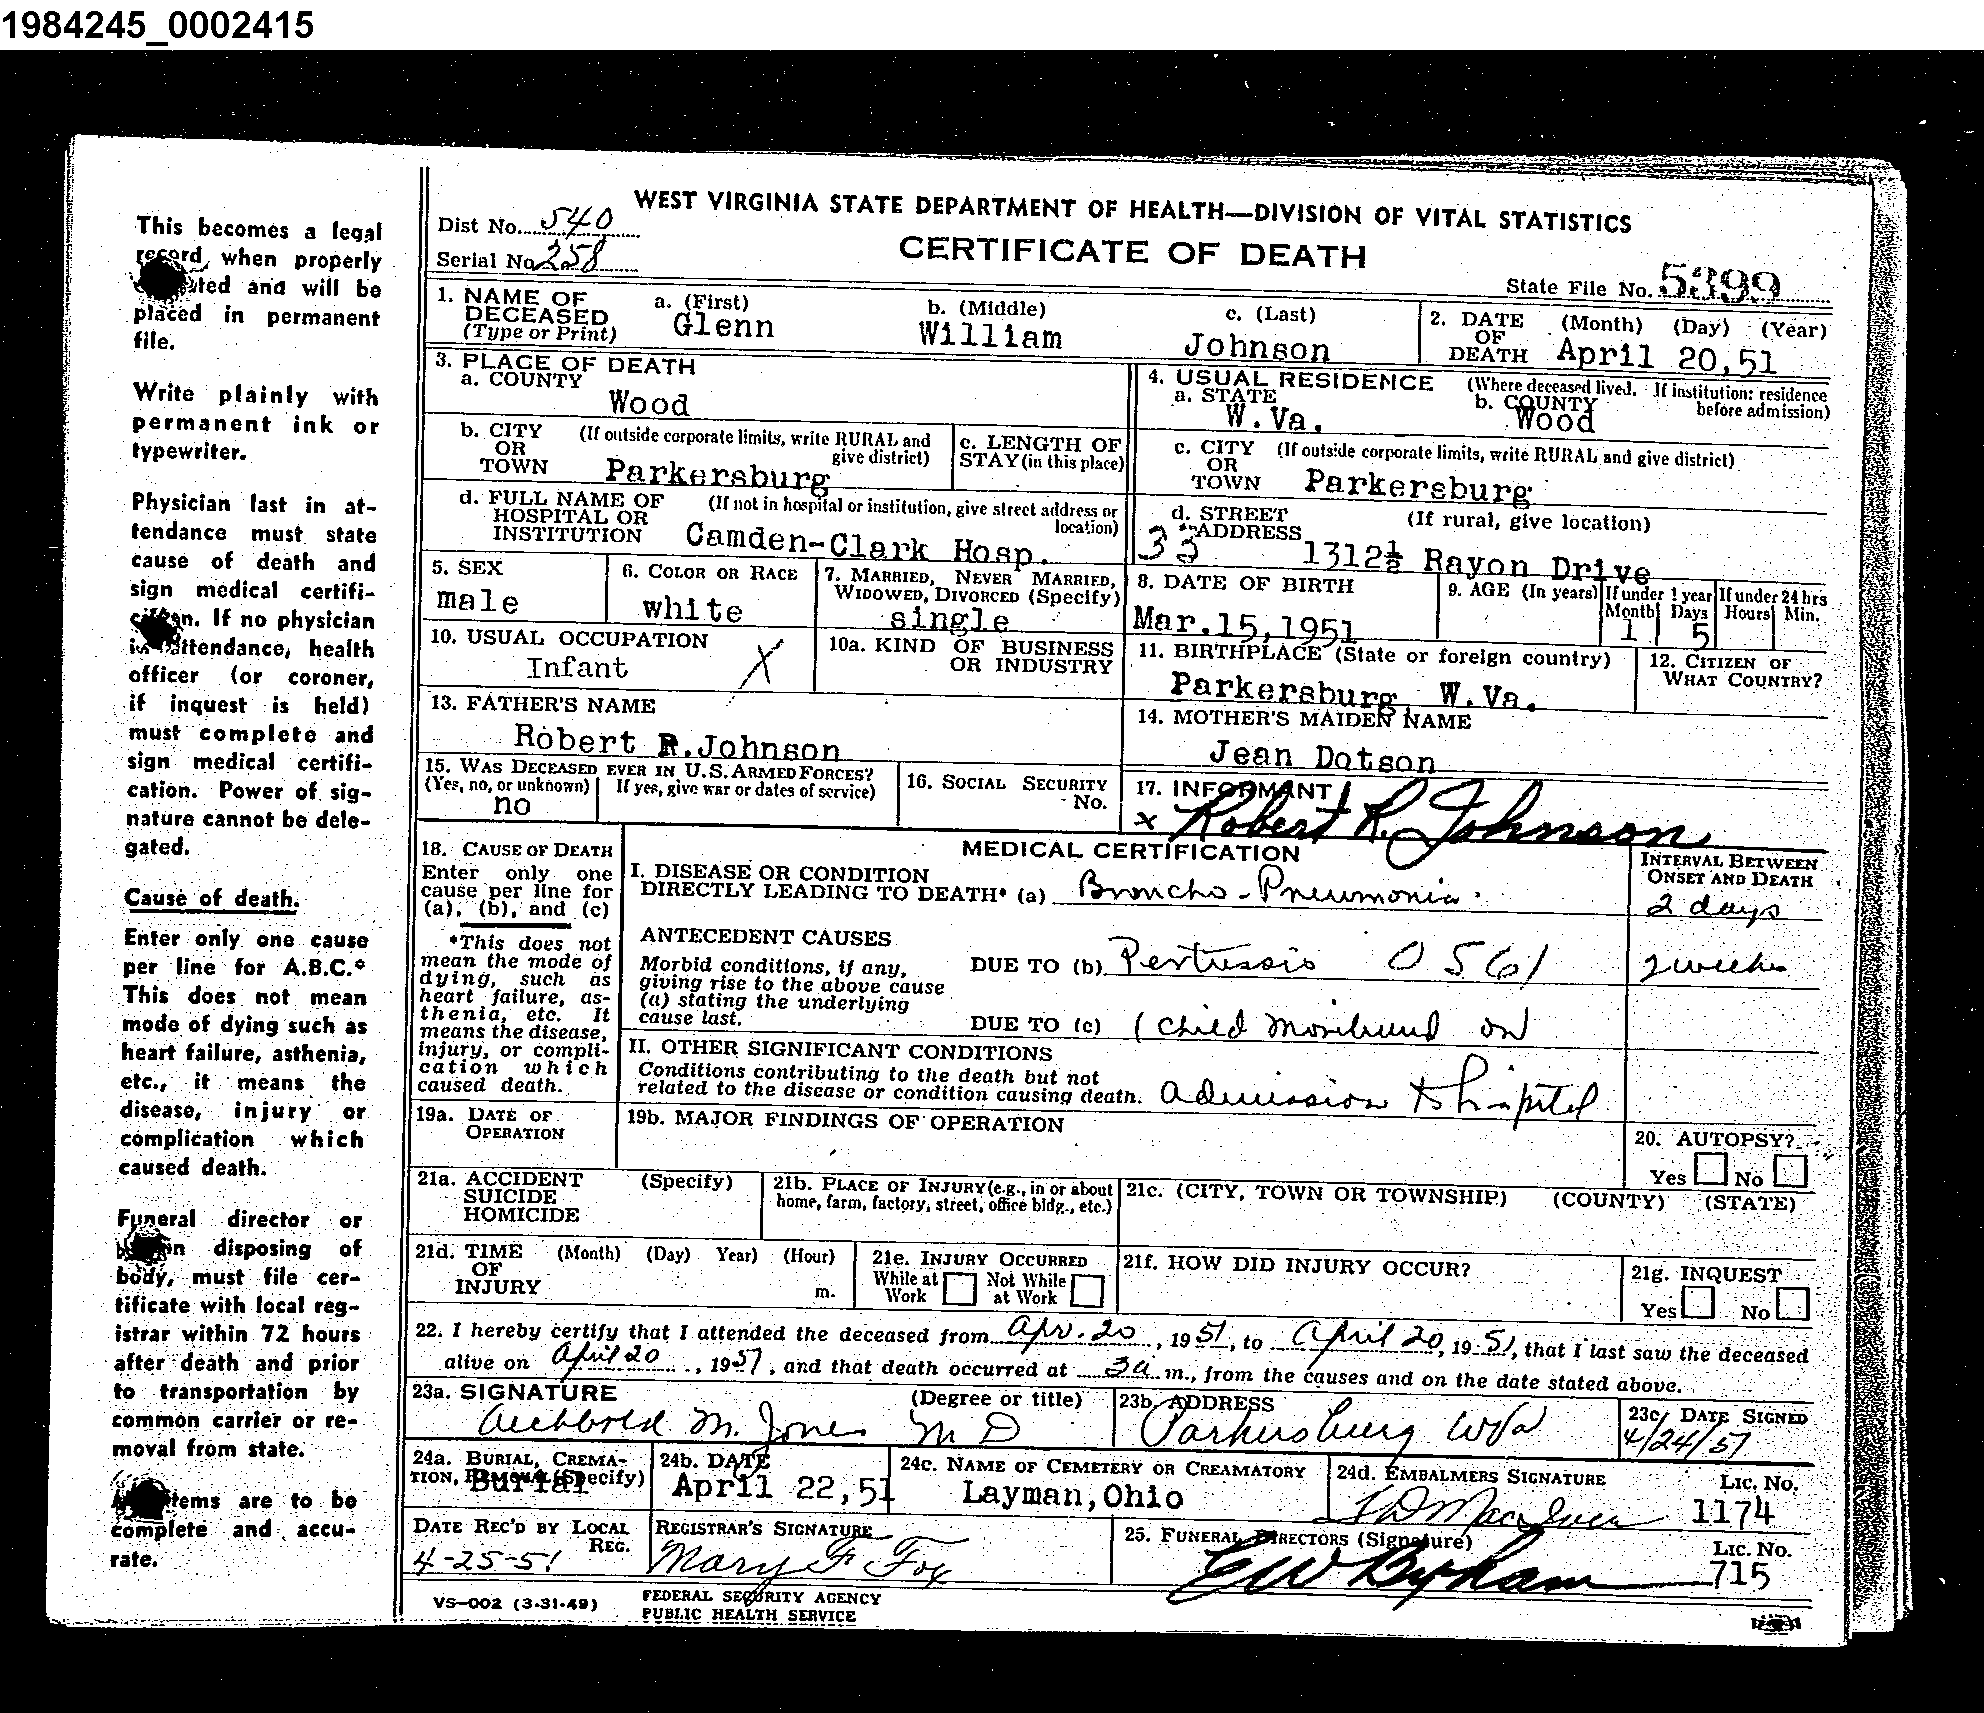 1984245_0002415
This becomes a legal
record, when properly
and will be
placed in permanent
file.
Write plainly with
permanent ink or
typewriter.
Physician last in at-
tendance must state
cause of death and
sign medical certifi-
If no physician
attendance, health
officer (or coroner,
if inquest is held)
must complete and
sign medical certifi-
cation. Power of sig-
nature cannot be dele-
gated.
Cause of death.
Enter only one cause
per line for A.B.C.*
This does not mean
mode of dying such as
heart failure, asthenia,
etc., it means the
disease, injury or
complication which
caused death.
Funeral director or
disposing of
body, must file cer-
tificate with local reg-
istrar within 72 hours
after death and prior
to transportation by
common carrier or re-
moval from state.
items are to be
complete and accu-
rate.
WEST VIRGINIA STATE DEPARTMENT OF HEALTH—DIVISION OF VITAL STATISTICS
Dist No. 540
CERTIFICATE OF DEATH
Serial No. 258
State File No. 5399
1. NAME OF DECEASED (Type or Print) a. (First) Glenn b. (Middle) William c. (Last) Johnson
2. DATE OF DEATH (Month) (Day) (Year) April 20,51
3. PLACE OF DEATH
a. COUNTY Wood
4. USUAL RESIDENCE (Where deceased lived. If institution: residence before admission)
a. STATE W.Va. b. COUNTY Wood
b. CITY OR TOWN (If outside corporate limits, write RURAL and give district) Parkersburg
c. LENGTH OF STAY (in this place)
c. CITY OR TOWN (If outside corporate limits, write RURAL and give district) Parkersburg
d. FULL NAME OF HOSPITAL OR INSTITUTION (If not in hospital or institution, give street address or location) Camden-Clark Hosp.
d. STREET ADDRESS (If rural, give location) 33 1312½ Rayon Drive
5. SEX male
6. COLOR OR RACE white
7. MARRIED, NEVER MARRIED, WIDOWED, DIVORCED (Specify) single
8. DATE OF BIRTH Mar.15,1951
9. AGE (In years) If under 1 year Month 1 Days 5 If under 24 hrs Hours Min.
10. USUAL OCCUPATION Infant X
10a. KIND OF BUSINESS OR INDUSTRY
11. BIRTHPLACE (State or foreign country) Parkersburg, W.Va.
12. CITIZEN OF WHAT COUNTRY?
13. FATHER'S NAME Robert R.Johnson
14. MOTHER'S MAIDEN NAME Jean Dotson
15. WAS DECEASED EVER IN U.S. ARMED FORCES? (Yes, no, or unknown) no If yes, give war or dates of service)
16. SOCIAL SECURITY No.
17. INFORMANT x Robert R. Johnson
18. CAUSE OF DEATH
Enter only one cause per line for (a), (b), and (c)
*This does not mean the mode of dying, such as heart failure, asthenia, etc. It means the disease, injury, or complication which caused death.
MEDICAL CERTIFICATION
INTERVAL BETWEEN ONSET AND DEATH
I. DISEASE OR CONDITION DIRECTLY LEADING TO DEATH* (a) Broncho-Pneumonia. 2 days
ANTECEDENT CAUSES
Morbid conditions, if any, giving rise to the above cause (a) stating the underlying cause last.
DUE TO (b) Pertussis 0561 2 weeks
DUE TO (c) (child moribund on
II. OTHER SIGNIFICANT CONDITIONS
Conditions contributing to the death but not related to the disease or condition causing death. admission to hospital
19a. DATE OF OPERATION
19b. MAJOR FINDINGS OF OPERATION
20. AUTOPSY? Yes No
21a. ACCIDENT SUICIDE HOMICIDE (Specify)
21b. PLACE OF INJURY (e.g., in or about home, farm, factory, street, office bldg., etc.)
21c. (CITY, TOWN OR TOWNSHIP) (COUNTY) (STATE)
21d. TIME OF INJURY (Month) (Day) Year) (Hour) m.
21e. INJURY OCCURRED While at Work Not While at Work
21f. HOW DID INJURY OCCUR?
21g. INQUEST Yes No
22. I hereby certify that I attended the deceased from Apr. 20, 1951, to April 20, 1951, that I last saw the deceased
alive on April 20, 1951, and that death occurred at 3a m., from the causes and on the date stated above.
23a. SIGNATURE (Degree or title) Archbold M. Jones M D
23b. ADDRESS Parkersburg WVa
23c. DATE SIGNED 4/24/51
24a. BURIAL, CREMATION, REMOVAL (Specify) Burial
24b. DATE April 22,51
24c. NAME OF CEMETERY OR CREAMATORY Layman,Ohio
24d. EMBALMERS SIGNATURE LIC. NO. 1174
DATE REC'D BY LOCAL REG. 4-25-51
REGISTRAR'S SIGNATURE Mary F Fox
25. FUNERAL DIRECTORS (Signature) LIC. NO. 715
VS-002 (3-31-49)
FEDERAL SECURITY AGENCY
PUBLIC HEALTH SERVICE